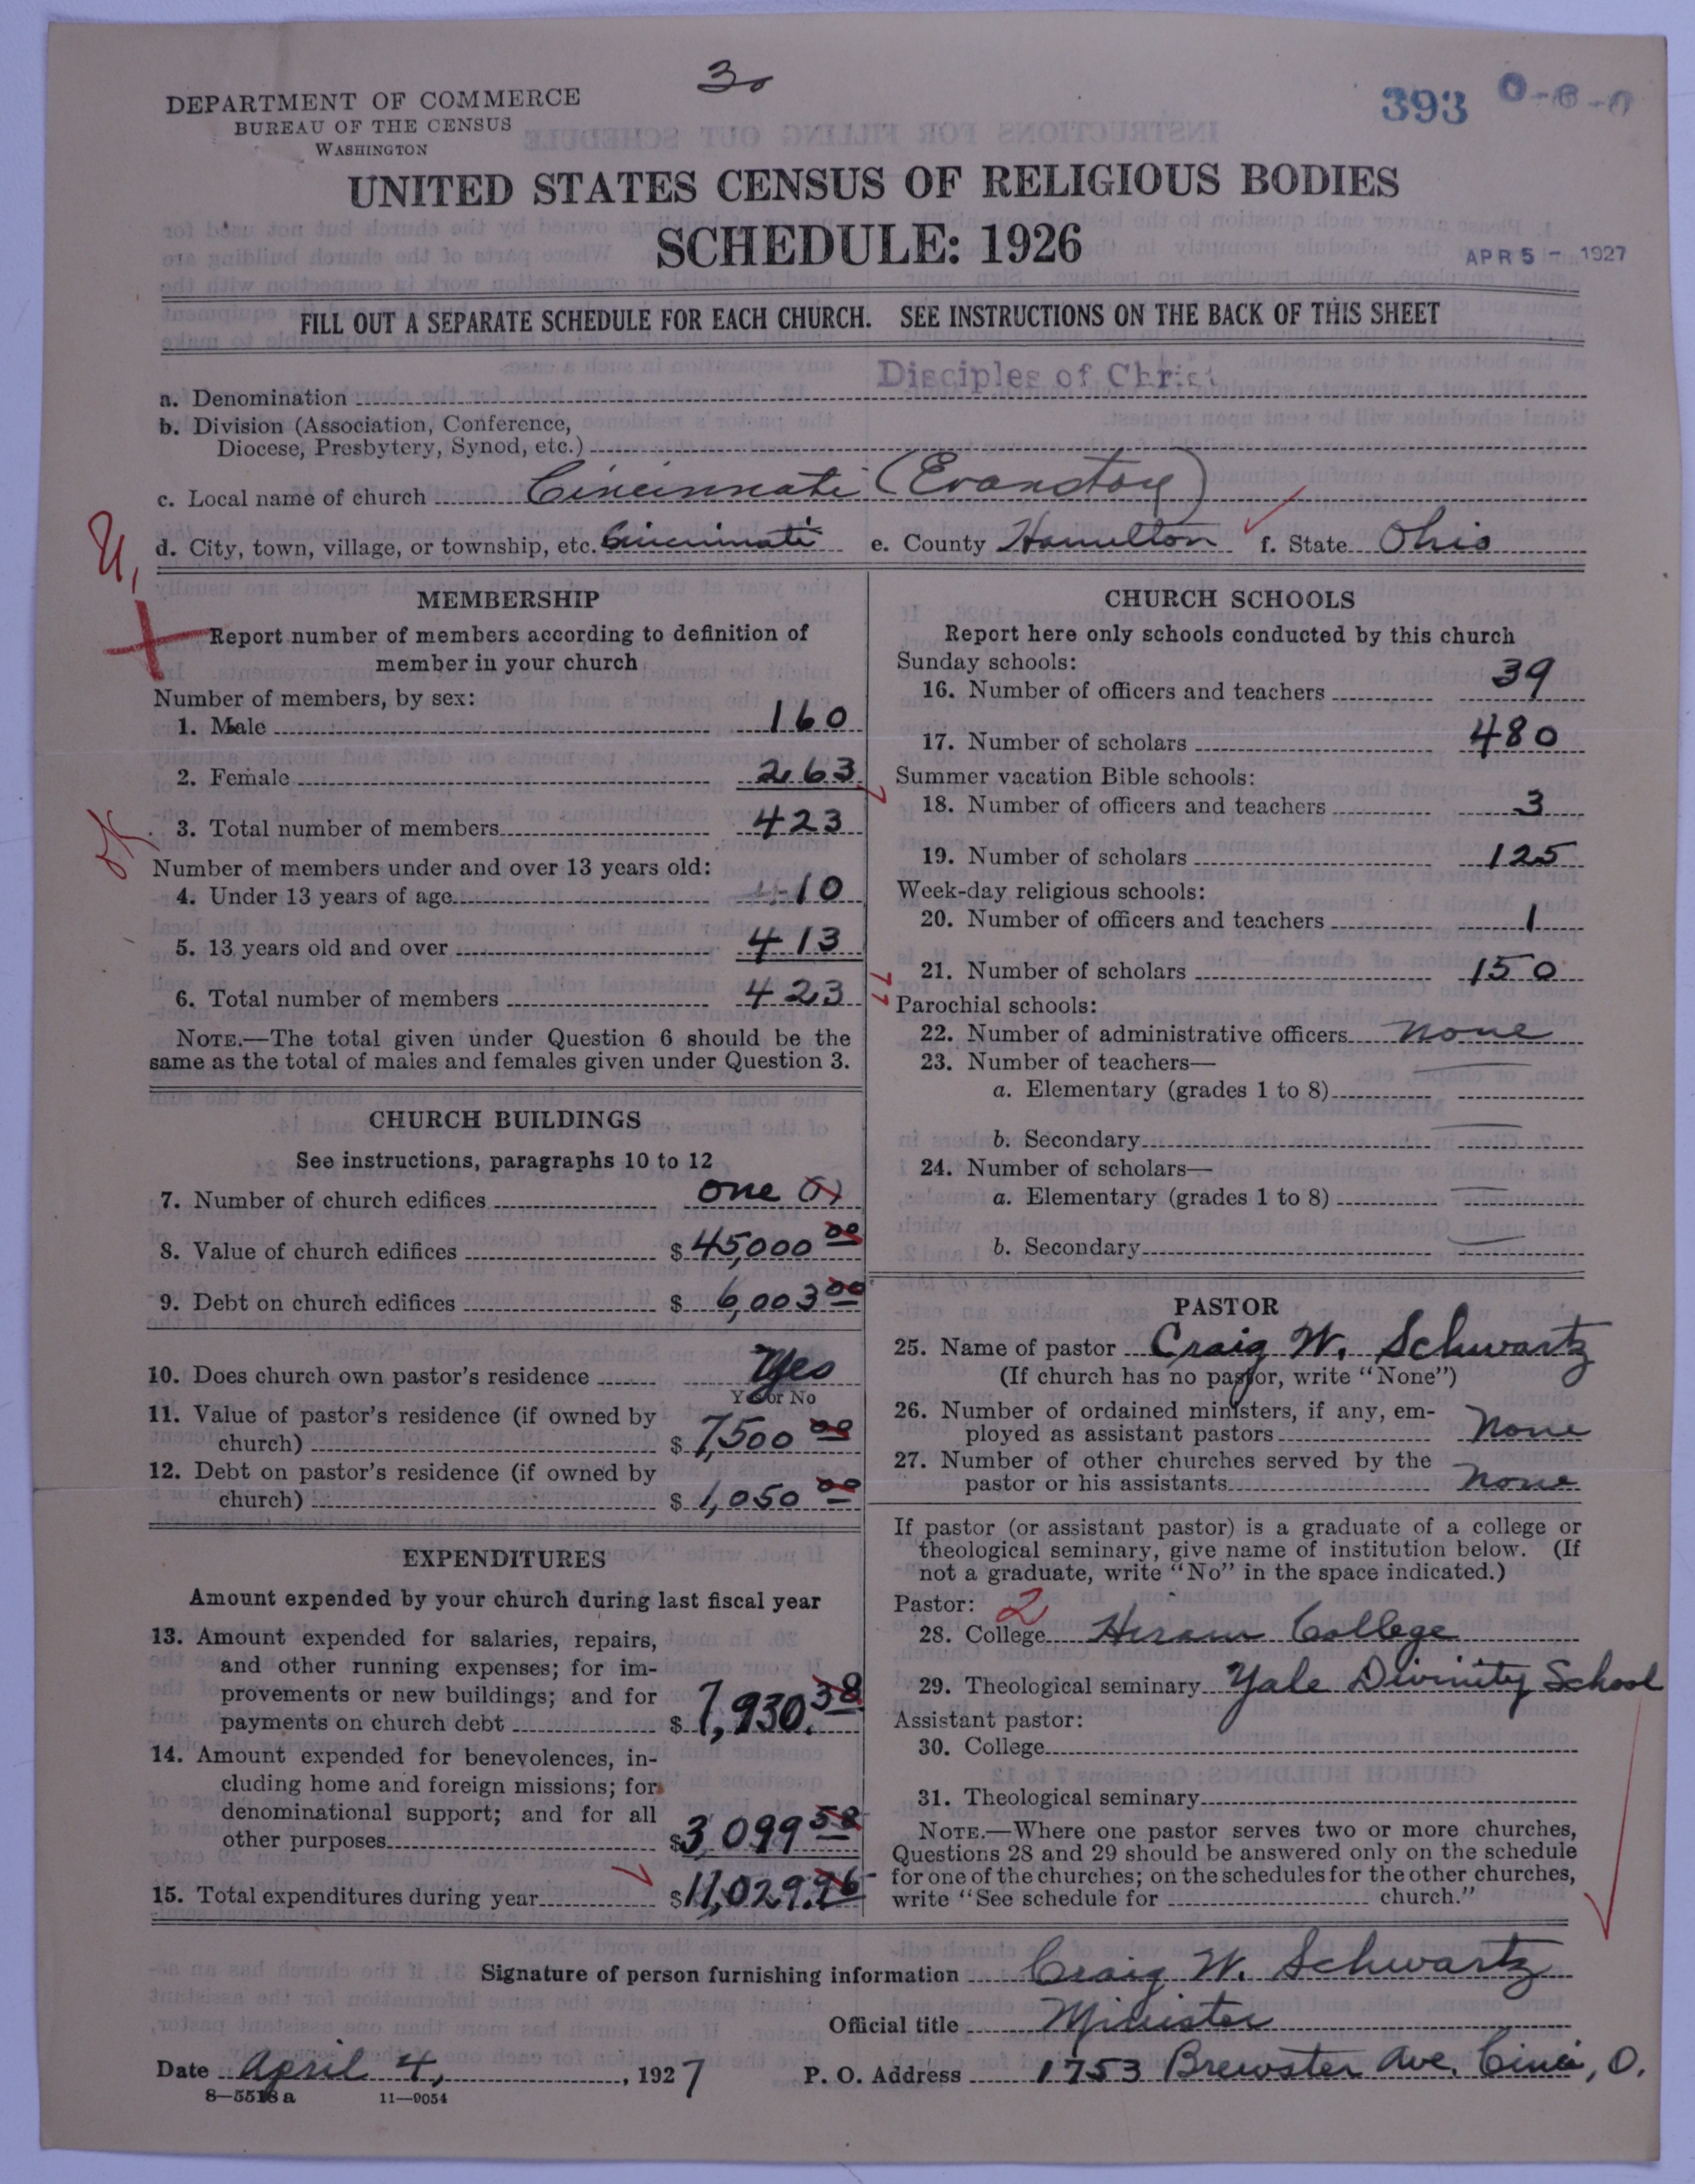 30
393
DEPARTMENT OF COMMERCE
BUREAU OF THE CENSUS
WASHINGTON
UNITED STATES CENSUS OF RELIGIOUS BODIES
SCHEDULE: 1926
APR 5 - 1927
FILL OUT A SEPARATE SCHEDULE FOR EACH CHURCH. SEE INSTRUCTIONS ON THE BACK OF THIS SHEET
a. Denomination Disciples of Christ
b. Division (Association, Conference,
Diocese, Presbytery, Synod, etc.)
c. Local name of church Cincinnati (Evanston)
d. City, town, village, or township, etc. Cincinnati e. County Hamilton f. State Ohio
MEMBERSHIP
Report number of members according to definition of
member in your church
Number of members, by sex:
1. Male 160
2. Female 263
3. Total number of members 423
Number of members under and over 13 years old:
4. Under 13 years of age 10
5. 13 years old and over 413
6. Total number of members 423
NOTE.—The total given under Question 6 should be the
same as the total of males and females given under Question 3.
CHURCH BUILDINGS
See instructions, paragraphs 10 to 12
7. Number of church edifices one (1)
8. Value of church edifices $ 45,000 00
9. Debt on church edifices $ 6,003 00
10. Does church own pastor's residence Yes
Yes or No
11. Value of pastor's residence (if owned by
church) $ 7,500 00
12. Debt on pastor's residence (if owned by
church) $ 1,050 00
EXPENDITURES
Amount expended by your church during last fiscal year
13. Amount expended for salaries, repairs,
and other running expenses; for im-
provements or new buildings; and for
payments on church debt $ 7,930.38
14. Amount expended for benevolences, in-
cluding home and foreign missions; for
denominational support; and for all
other purposes $3,099 58
15. Total expenditures during year $11,029.96
CHURCH SCHOOLS
Report here only schools conducted by this church
Sunday schools:
16. Number of officers and teachers 39
17. Number of scholars 480
Summer vacation Bible schools:
18. Number of officers and teachers 3
19. Number of scholars 125
Week-day religious schools:
20. Number of officers and teachers 1
21. Number of scholars 150
Parochial schools:
22. Number of administrative officers None
23. Number of teachers—
a. Elementary (grades 1 to 8)
b. Secondary
24. Number of scholars—
a. Elementary (grades 1 to 8)
b. Secondary
PASTOR
25. Name of pastor Craig W. Schwartz
(If church has no pastor, write "None")
26. Number of ordained ministers, if any, em-
ployed as assistant pastors None
27. Number of other churches served by the
pastor or his assistants None
If pastor (or assistant pastor) is a graduate of a college or
theological seminary, give name of institution below. (If
not a graduate, write "No" in the space indicated.)
Pastor: 2
28. College Hiram College
29. Theological seminary Yale Divinity School
Assistant pastor:
30. College
31. Theological seminary
NOTE.—Where one pastor serves two or more churches,
Questions 28 and 29 should be answered only on the schedule
for one of the churches; on the schedules for the other churches,
write "See schedule for church."
Signature of person furnishing information Craig W. Schwartz
Official title Minister
Date April 4, 1927 P. O. Address 1753 Brewster Ave. Cinci, O.
8—5518 a 11—9054